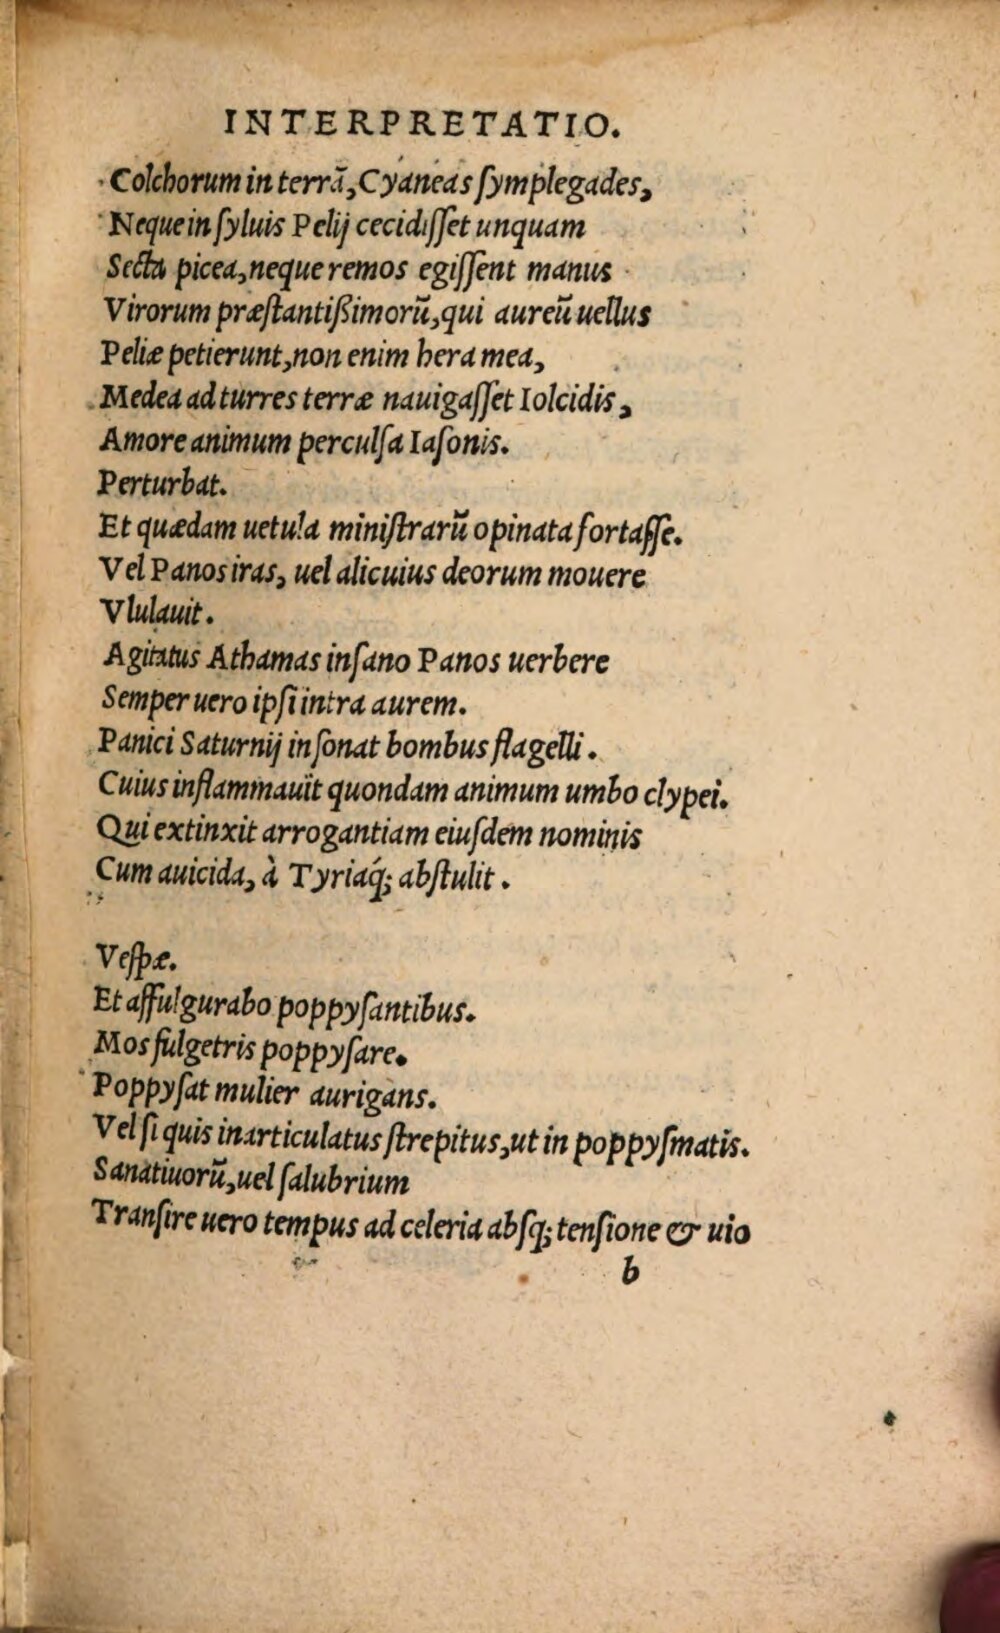 INTERPRETATIO.
Colchorum in terrã, Cyaneas ſymplegades,
Neque in ſyluis Pelij cecidiſſet unquam
Secta picea, neque remos egiſſent manus
Virorum præſtantiſsimorũ, qui aureũ uellus
Peliæ petierunt, non enim hera mea,
Medea ad turres terræ nauigaſſet Iolcidis,
Amore animum perculſa Iaſonis.
Perturbat.
Et quædam uetula miniſtrarũ opinata fortaſſe.
Vel Panos iras, uel alicuius deorum mouere
Vlulauit.
Agitatus Athamas inſano Panos uerbere
Semper uero ipſi intra aurem.
Panici Saturnij inſonat bombus flagelli.
Cuius inflammauit quondam animum umbo clypei.
Qui extinxit arrogantiam eiuſdem nominis
Cum auicida, à Tyriaq́; abſtulit.
Veſpæ.
Et affulgurabo poppyſantibus.
Mos fulgetris poppyſare.
Poppyſat mulier aurigans.
Vel ſi quis inarticulatus ſtrepitus, ut in poppyſmatis.
Sanatiuorũ, uel ſalubrium
Tranſire uero tempus ad celeria abſq; tenſione & uio
b